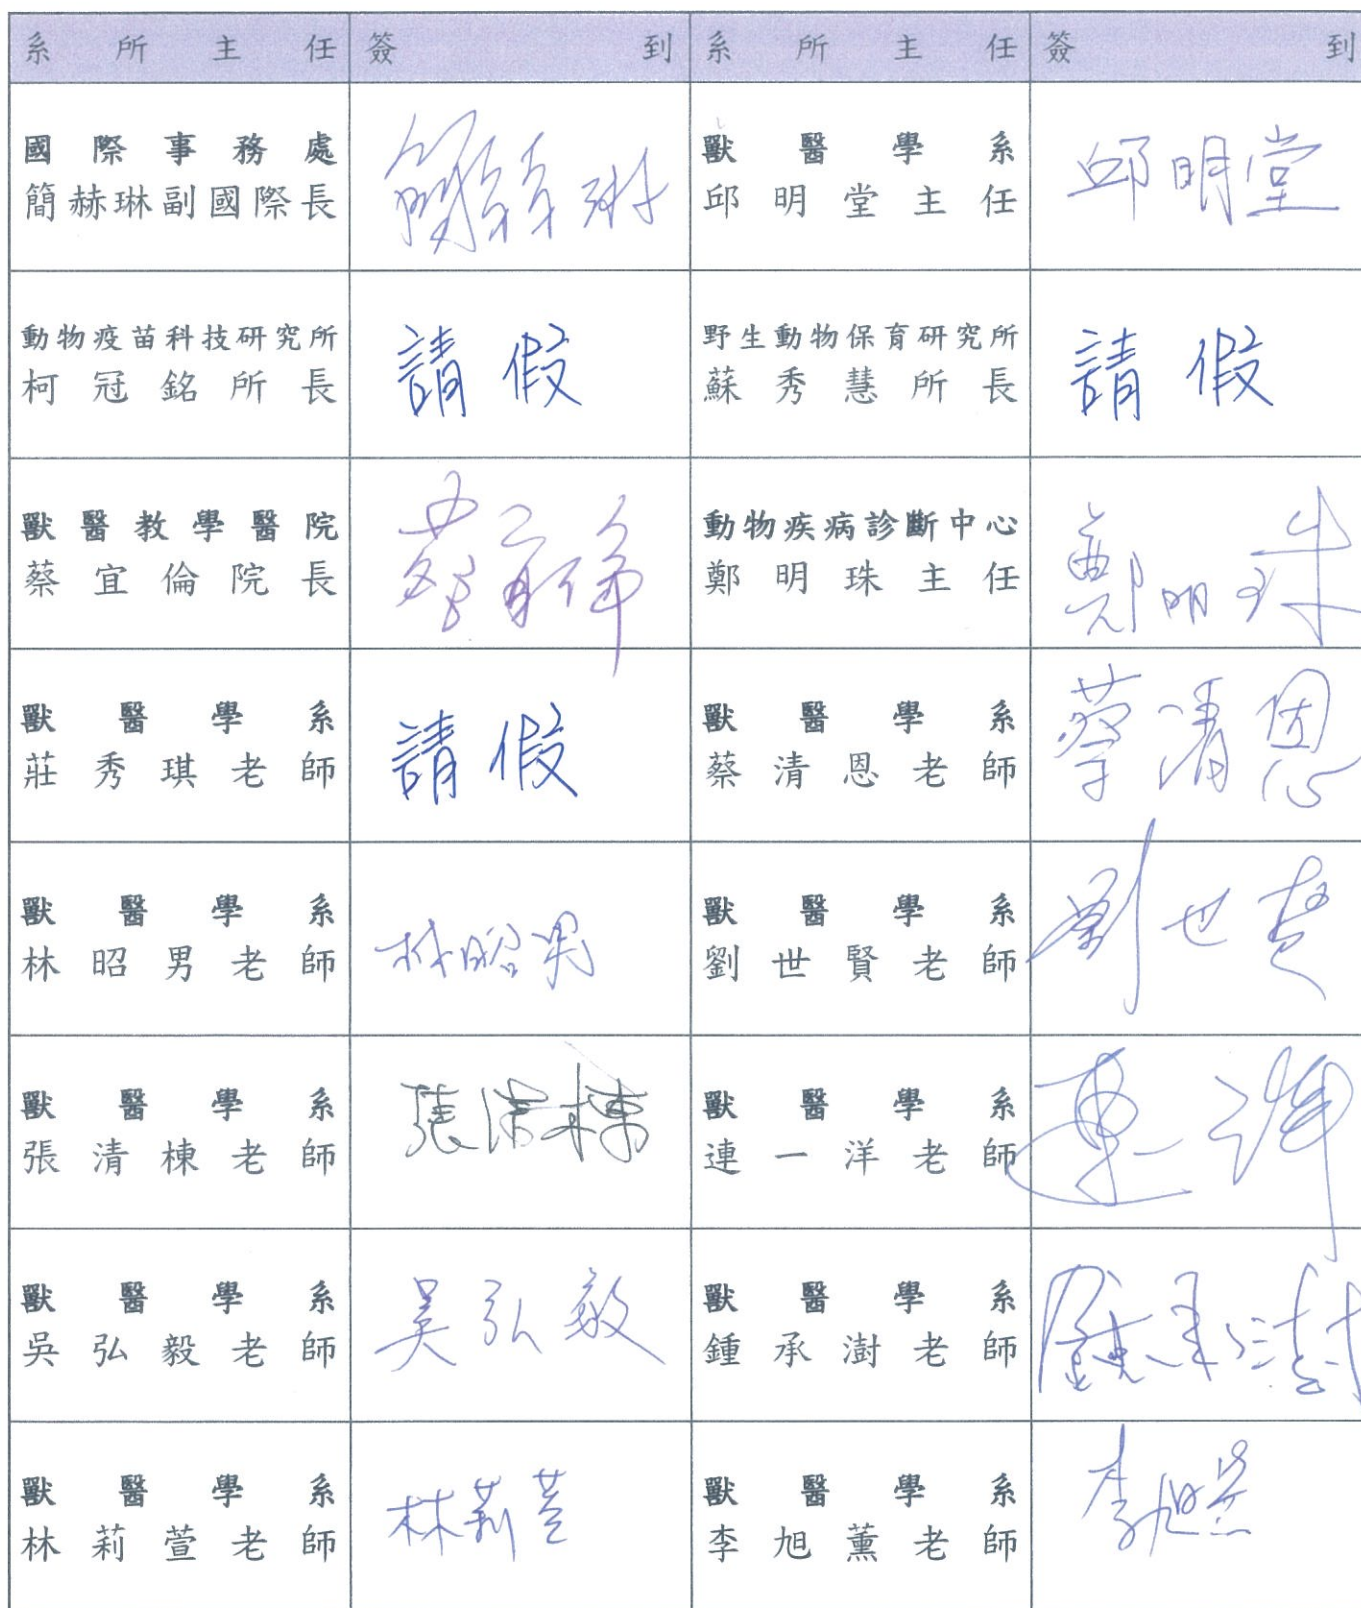 系所主任 簽到 系所主任 簽到
國際事務處
簡赫琳副國際長
簡赫琳
獸醫學系
邱明堂主任
邱明堂
動物疫苗科技研究所
柯冠銘所長
請假
野生動物保育研究所
蘇秀慧所長
請假
獸醫教學醫院
蔡宜倫院長
蔡宜倫
動物疾病診斷中心
鄭明珠主任
鄭明珠
獸醫學系
莊秀琪老師
請假
獸醫學系
蔡清恩老師
蔡清恩
獸醫學系
林昭男老師
林昭男
獸醫學系
劉世賢老師
劉世賢
獸醫學系
張清棟老師
張清棟
獸醫學系
連一洋老師
連一洋
獸醫學系
吳弘毅老師
吳弘毅
獸醫學系
鍾承澍老師
鍾承澍
獸醫學系
林莉萱老師
林莉萱
獸醫學系
李旭薰老師
李旭薰